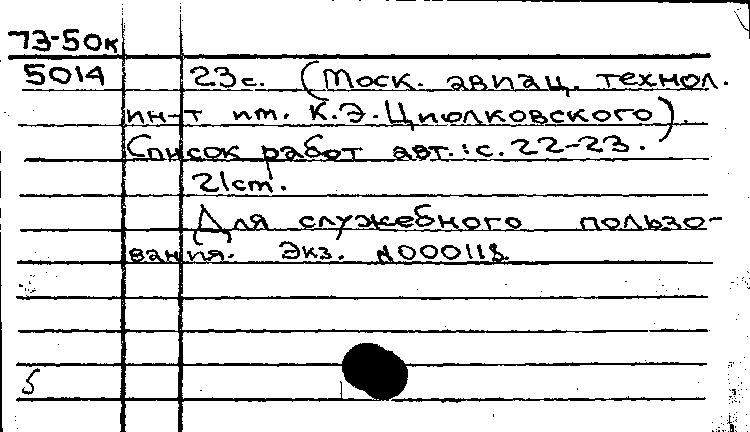 73-50к
5014 23с. (Моск. авиац. технол.
ин-т им. К.Э.Циолковского).
Список работ авт.: с. 22-23.
21cm.
Для служебного пользо-
вания. Экз. N000118
5